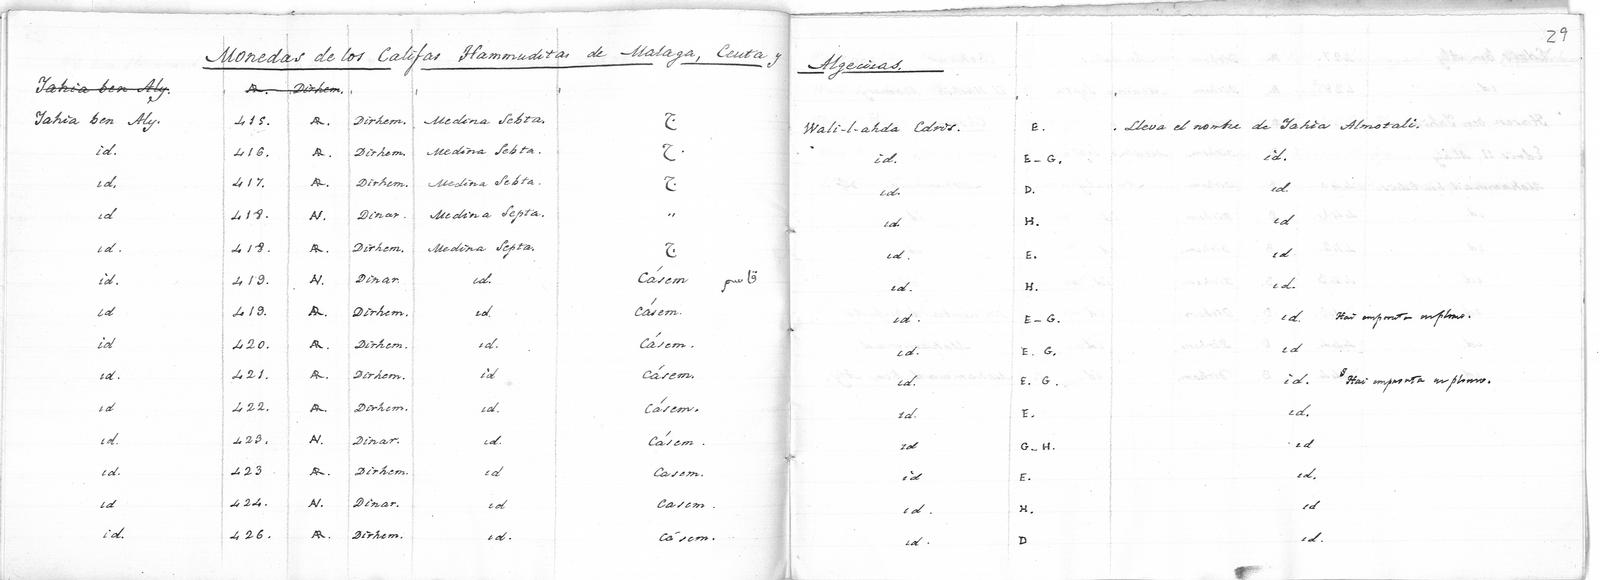 29
Monedas de los Califas Hammuditas de Malaga, Ceuta y Algeciras.
Iahia ben Aly. Dirhem.
Iahia ben Aly. 415. Dirhem. Medina Sebta. Wali-l-ahda Edris. E. Lleva el nombre de Iahia Almotali.
id. 416. Dirhem. Medina Sebta. id. E-G. id.
id. 417. Dirhem. Medina Sebta. id. D. id
id 418. Dinar. Medina Septa. " id H. id
id. 418. Dirhem. Medina Septa. id. E. id
id. 419. Dinar. id. Cásem id. H. id.
id 419. Dirhem. id Cásem. id. E-G. id. Hai impronta en plomo.
id 420. Dirhem. id. Cásem. id. E. G. id
id. 421. Dirhem. id Cásem. id. E. G. id. Hai impronta en plomo.
id 422. Dirhem. id. Cásem. id. E. id.
id. 423. Dinar. id Cásem. id G-H. id
id. 423 Dirhem. id Casem. id E. id.
id 424. Dinar. id Casem. id. H. id
id. 426. Dirhem. id. Cásem. id. D id.